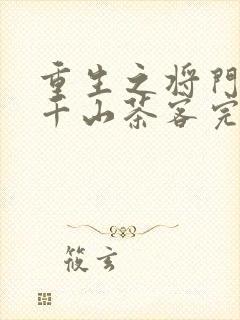 重生之将门
千山茶客完
筱玄